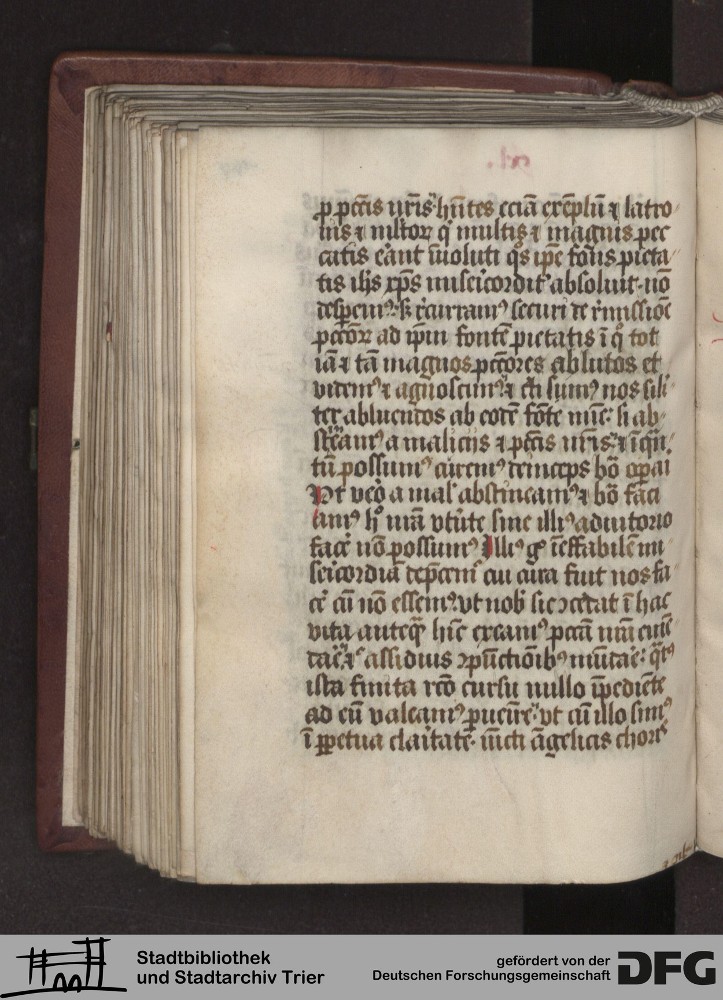 p̲ pctis nr̄is hn̄tes eciā exēplū ⁊ latro
nis ⁊ ml̄tor̄ q̇ multis ⁊ magnis pec
catis erāt īuoluti q̄s ip̄e fōtis pieta
tis ih̄s xp̄s misericordit̾ absoluit. nō
desperem⁹. s̄ recurram⁹ securi de r̾missiōe
pctōꝝ ad ip̄m fontē pietatis ī q̊ tot
iā ⁊ tā magnos pctōres ablutos et
videm⁹ ⁊ agnoscim⁹. ⁊ c̄ti sum⁹ nos sili
ter abluendos ab eodē fōte
a maliciis ⁊ pctīs nr̄is. ⁊ īq̄n
tū possum⁹ curem⁹ deinceps bōa op̄ari
Ut vero a mal̾ abstineam⁹ ⁊ bōa faci
am⁹ h̊ nr̄a v̾tute sine illi⁹ adiutorio
facē nō possum⁹ Illi⁹ g̊ īeffabilē mi
sericordiā dep̄cem̄ cui cura fuit nos fa
cē cū nō essem⁹. vt nob̾ sic ꝯcedat ī hac
vita anteq̄ hīc exeam⁹ pctā nr̄a emē
assiduis ꝯpūctiōib⁹
ista finita rcō cursu nullo īpediēte
ad eū valeam⁹ p̲uenīe. vt cū illo sim⁹
ī p̲petua claritate. iūcti āgelicis chor̾
Stadtbibliothek
und Stadtarchiv Trier
gefördert von der
Deutschen Forschungsgemeinschaft
DFG